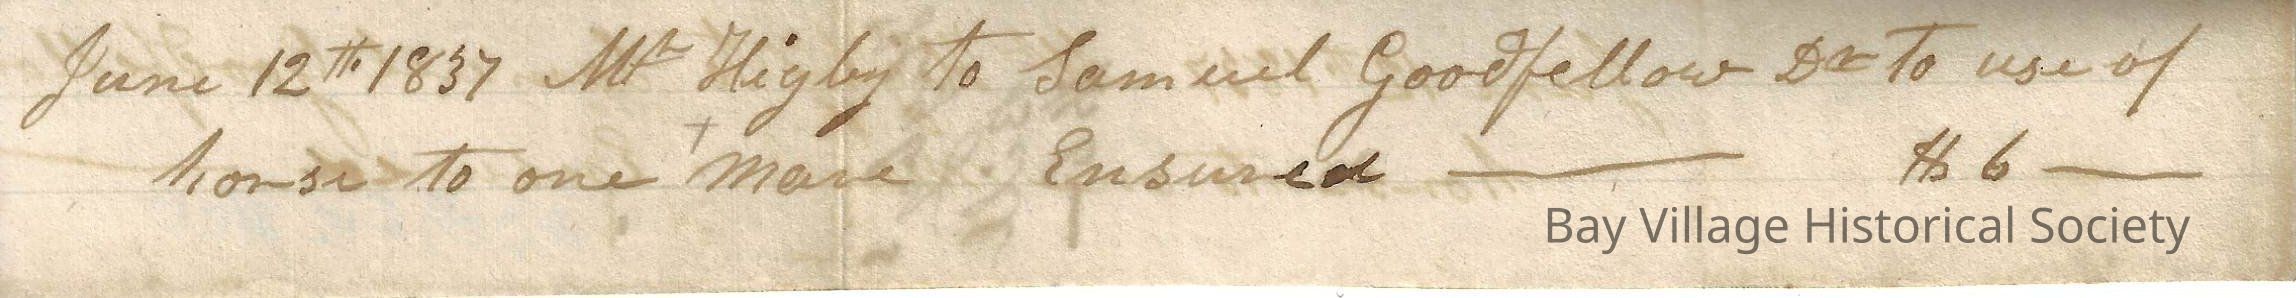 June 12th 1837 Mr Higby to Samuel Goodfellow Dr To use of
horse to one mare Ensured — $ 6 —
Bay Village Historical Society